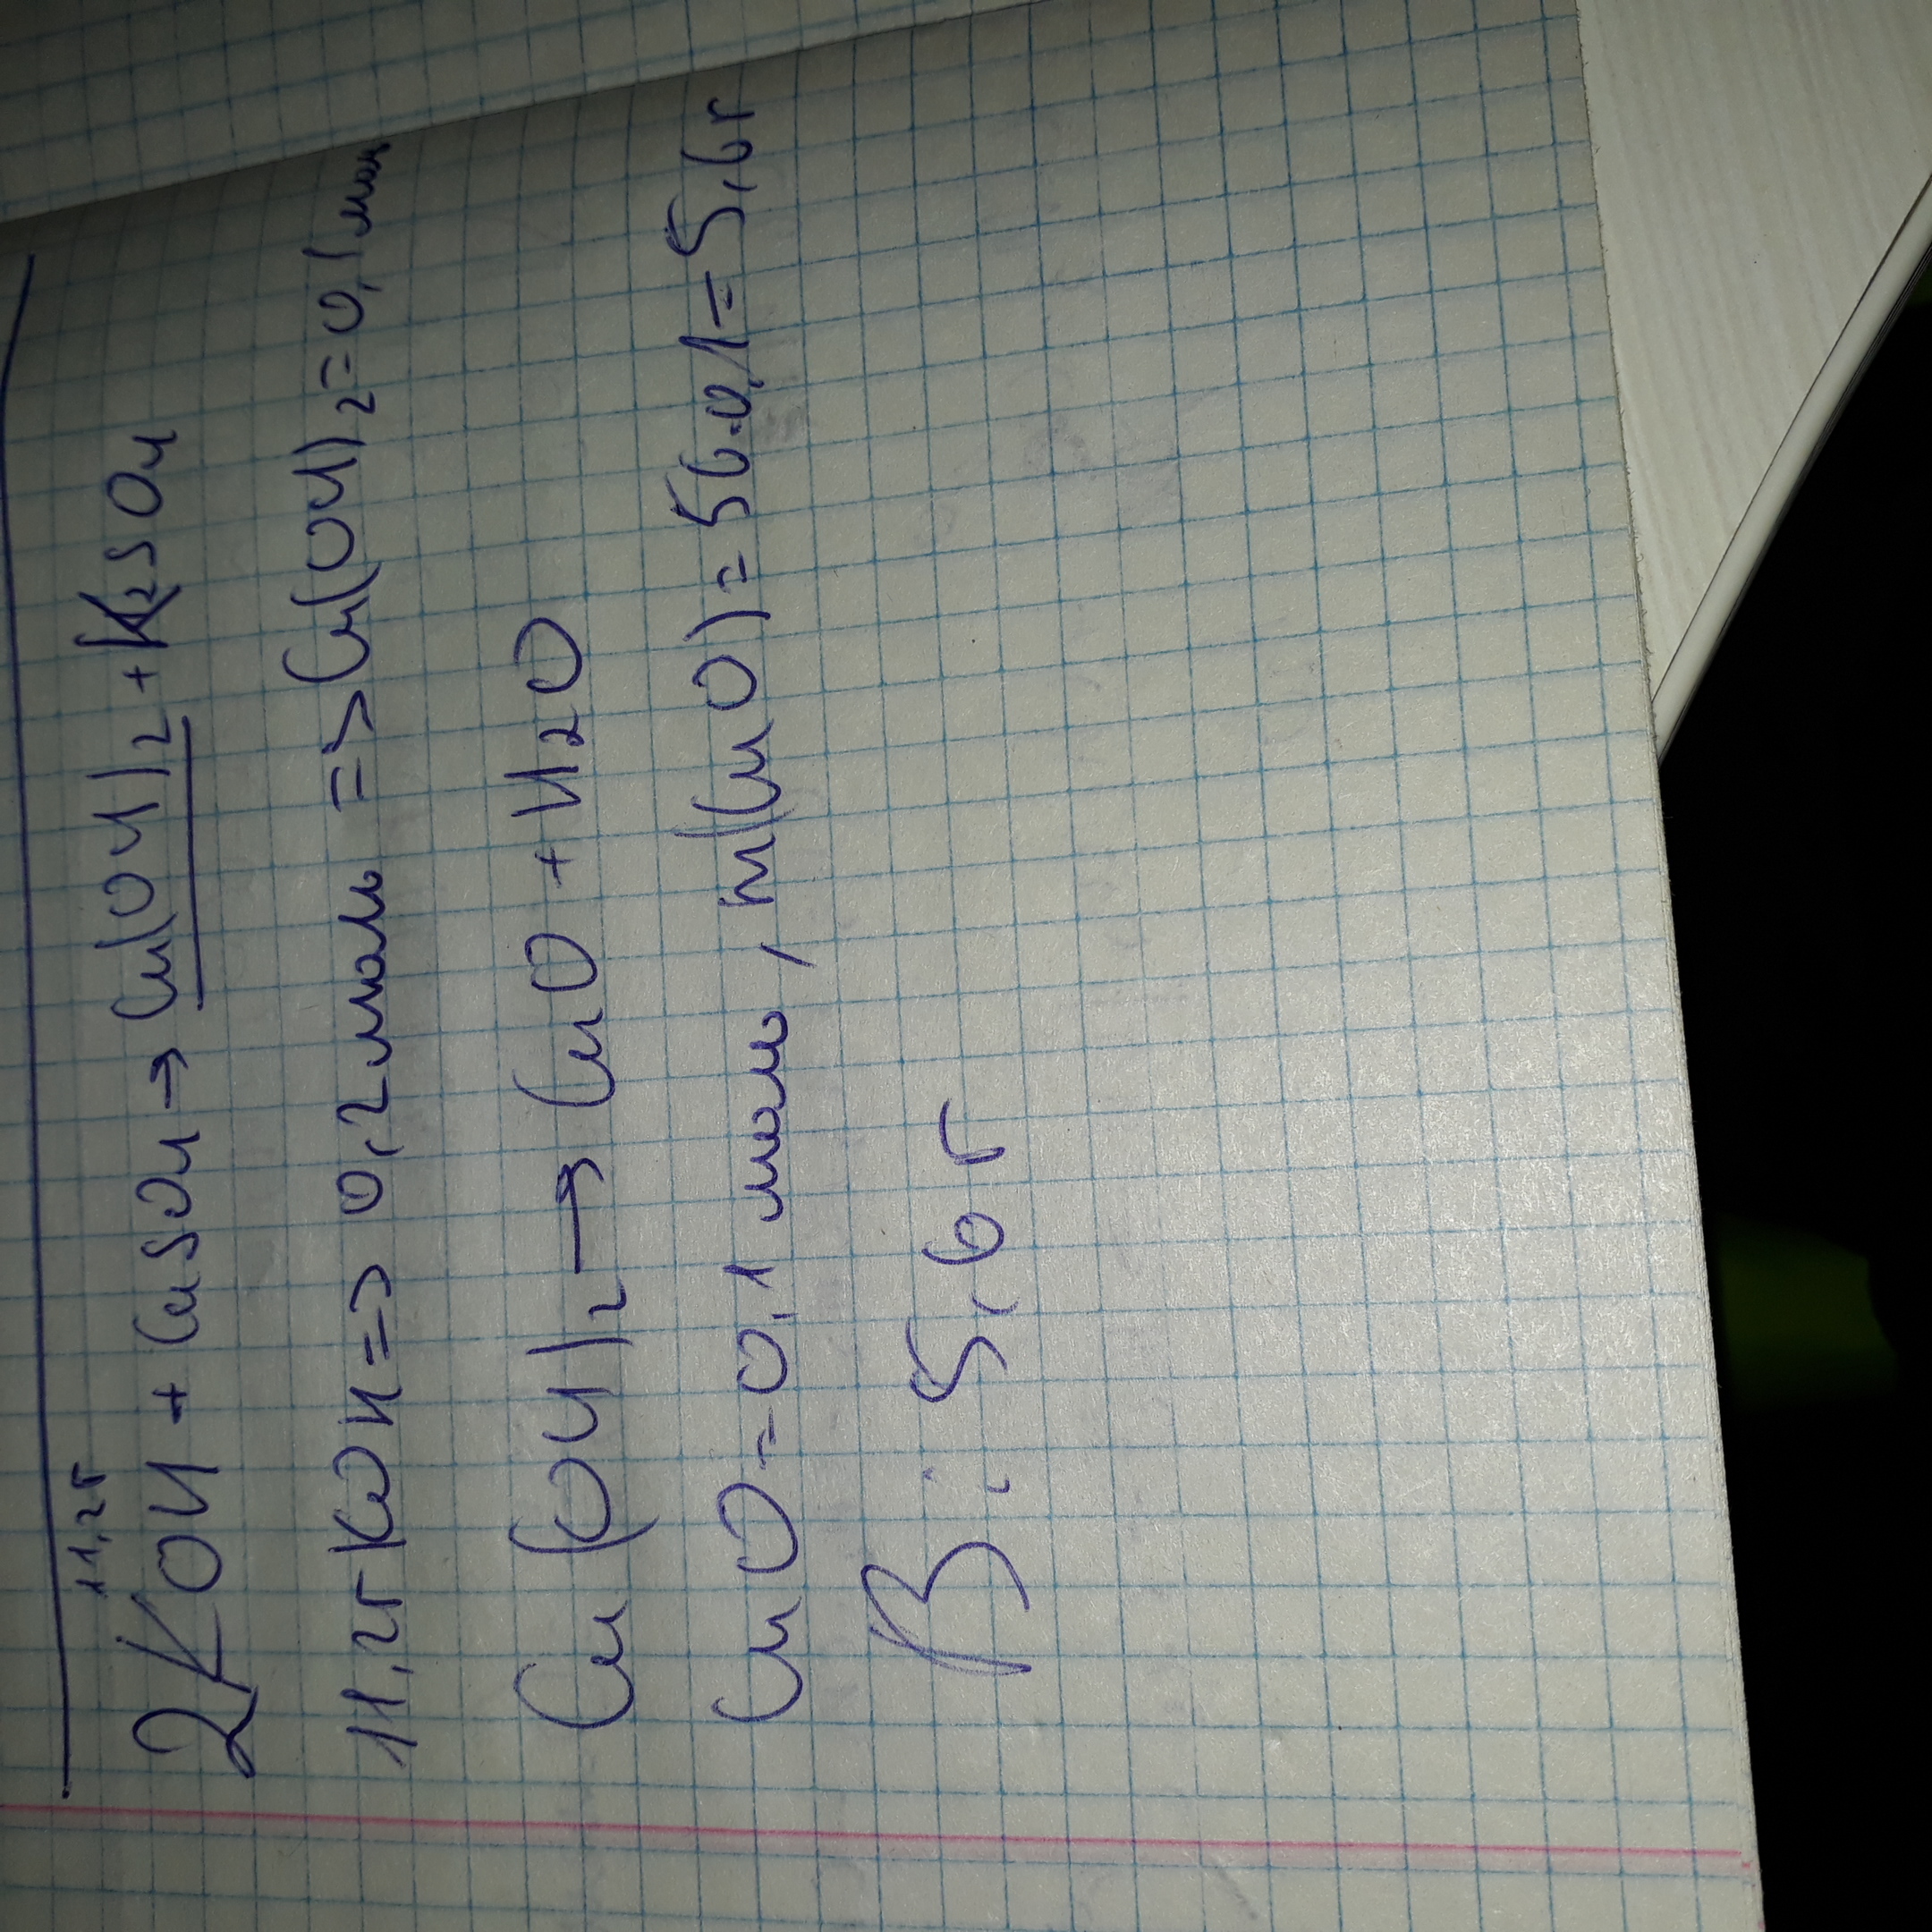 11,2г
2KOH + CuSO4 → Cu(OH)2 + K2SO4
11,2г KOH => 0,2моль => Cu(OH)2 = 0,1моль
Cu(OH)2 → CuO + H2O
CuO = 0,1 моль, m(CuO) = 56·0,1 = 5,6г
В: 5,6г